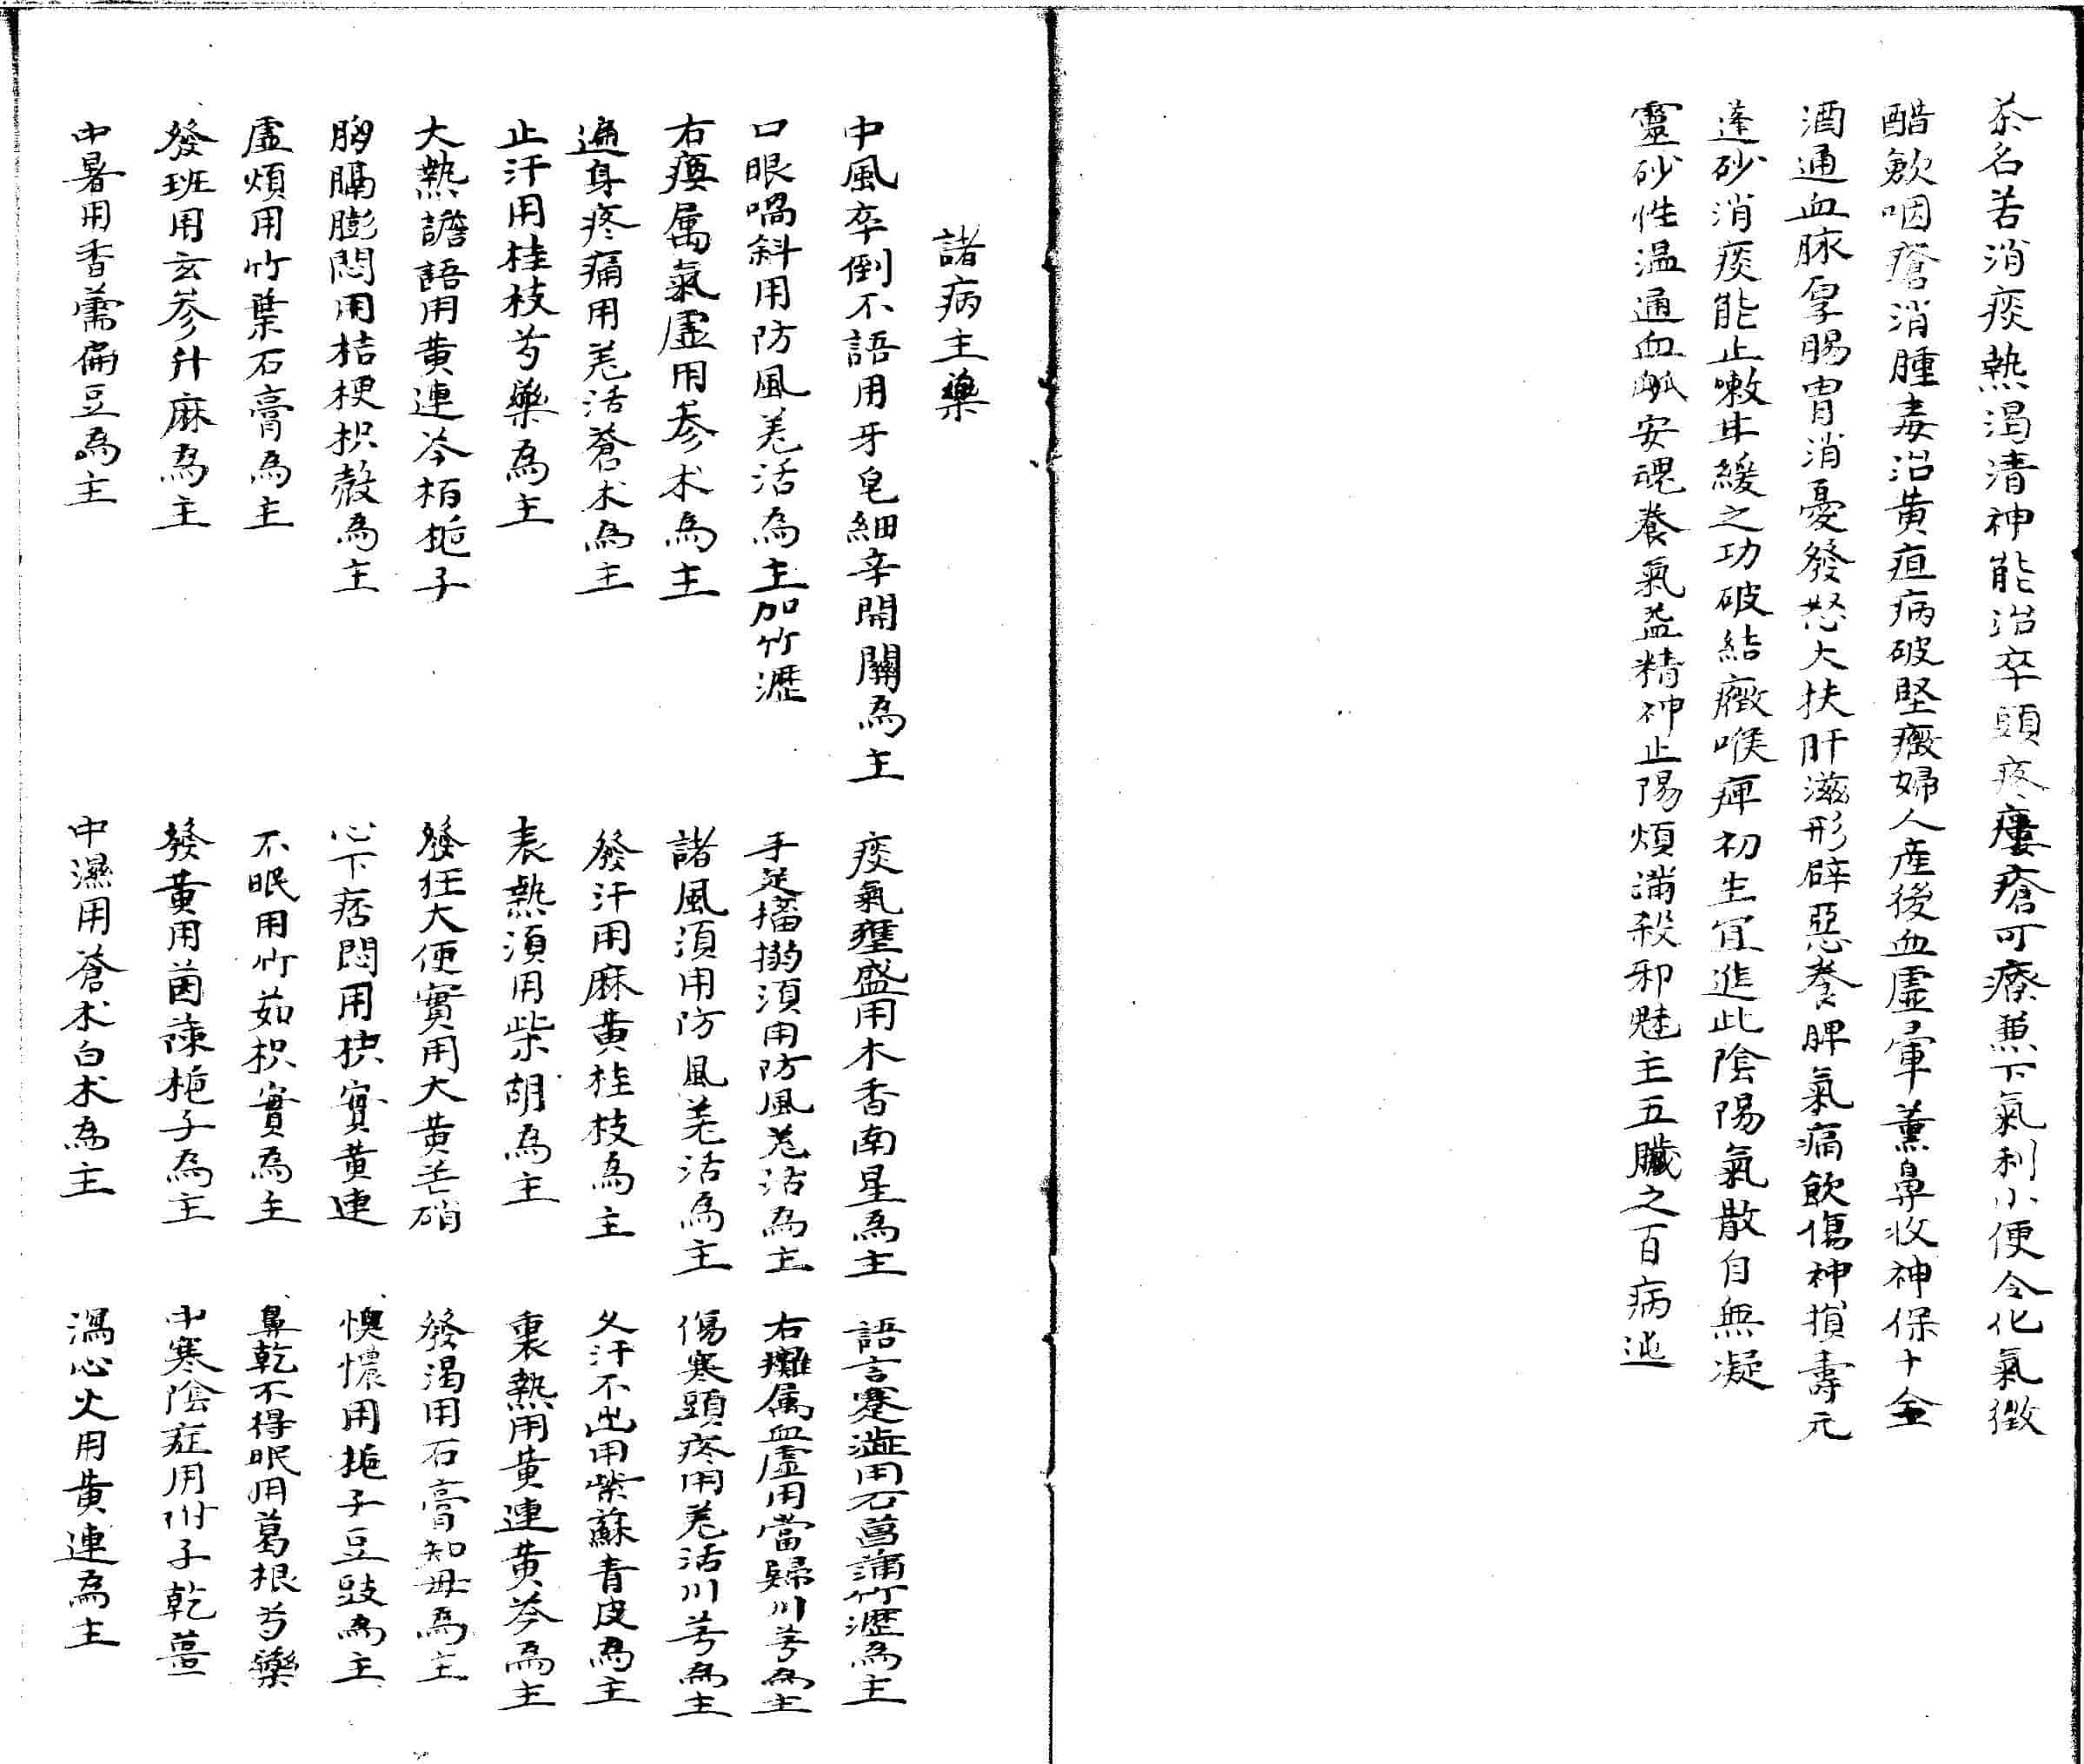 茶名苦消痰熱渴清神能治卒頭疼瘻瘡可療兼下氣利小便令化氣微
醋歛咽瘡消腫毒治黃疸病破堅癥婦人產後血虛暈薰鼻收神保十全
酒通血脉厚腸胃消憂發怒大扶肝滋形辟惡養脾氣痛飲傷神損壽元
蓬砂消痰能止嗽甘緩之功破結癥喉痺初生宜進此陰陽氣散自無凝
靈砂性温通血脈安魂養氣益精神止陽煩滿殺邪魅主五臟之百病迍
諸病主藥
中風卒倒不語用牙皂細辛開關為主 痰氣壅盛用木香南星為主 語言蹇澁用石菖蒲竹瀝為主
口眼喎斜用防風羌活為主加竹瀝 手足搐搦須用防風羌活為主 右癱属血虛用當歸川芎為主
右痪属氣虛用參术為主 諸風須用防風羌活為主 傷寒頭疼用羌活川芎為主
遍身疼痛用羌活蒼术為主 發汗用麻黃桂枝為主 久汗不出用紫蘇青皮為主
止汗用桂枝芍藥為主 表熱須用柴胡為主 裏熱用黃連黃芩為主
大熱譫語用黃連芩栢梔子 發狂大便實用大黃芒硝 發渴用石膏知母為主
胸膈膨悶用桔梗枳殼為主 心下痞悶用枳實黃連 懊憹用梔子豆豉為主
虛煩用竹葉石膏為主 不眠用竹茹枳實為主 鼻乾不得眠用葛根芍藥
發班用玄參升麻為主 發黃用茵蔯梔子為主 中寒陰症用附子乾薑
中暑用香薷扁豆為主 中濕用蒼术白术為主 瀉心火用黃連為主